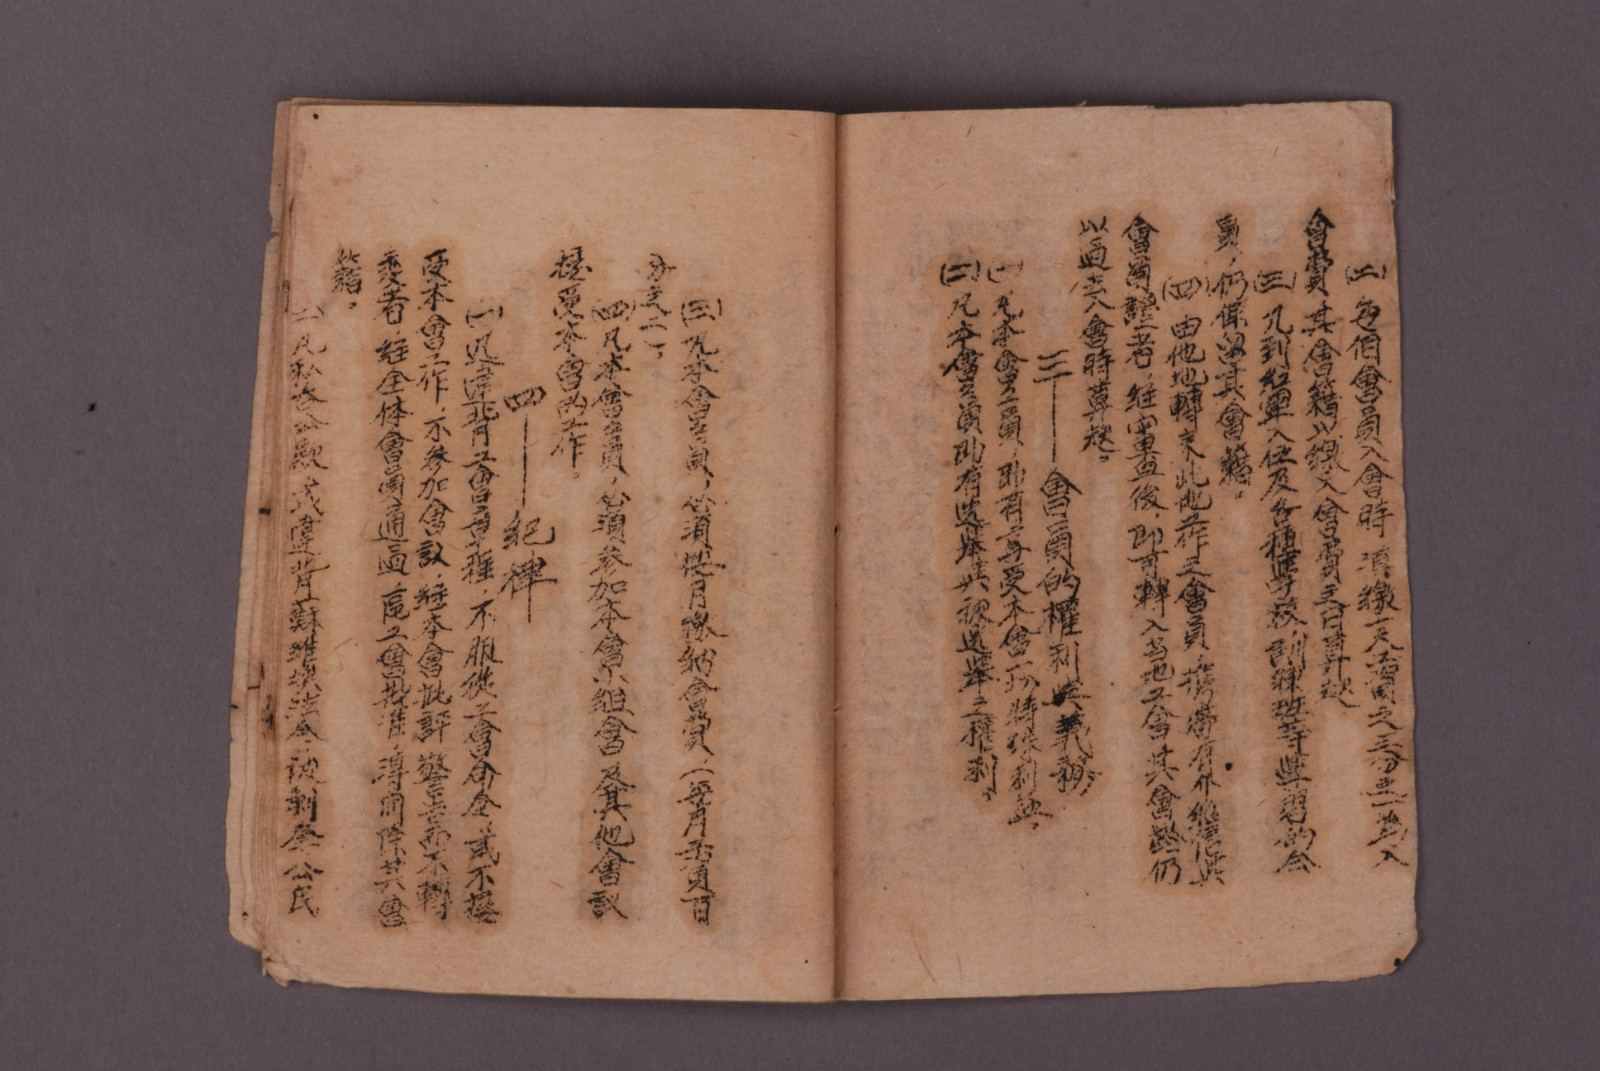 (二)每個會員入會時須繳一天工資之三分之一為入
會費其會籍以繳入會費之日時計起
(三)凡到紅軍入伍及各種學校訓練班等學習的会
員,仍保留其會籍,
(四)由他地轉來此地工作之會員,携帶有介紹信與
會員證者,經審查後,即可轉入當地工會其會齡仍
以過去入會時算起。
三——會員的權利與義務
(一)凡本會會員,即有享受本會一切特殊利益,
(二)凡本會會員即有選舉與被選舉之權利,
(三)凡本會會員,必須按月繳納會費,(每月工資百
分之一,
(四)凡本會會員,必須參加本會小組會及其他會議
接受本會的工作。
四——紀律
(一)凡違背工會章程,不服從工會命令或不接
受本會工作,不參加會議,經本會批評警告而不轉
變者,經全体會員通過,區工會批准,得開除其會
籍,
(二)凡私吞公款,或違背蘇維埃法令,被剝奪公民